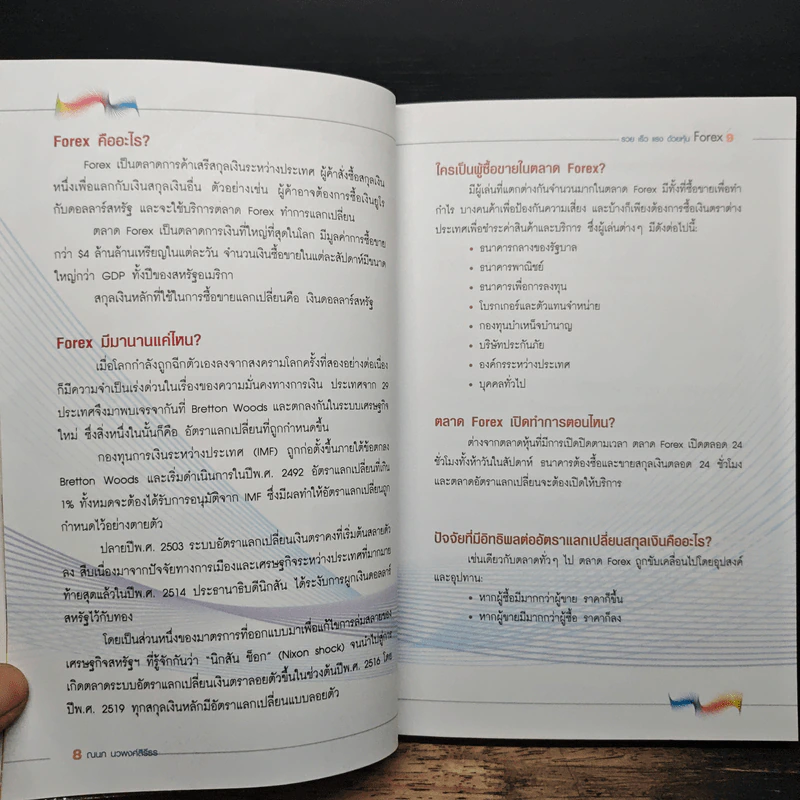 Forex คืออะไร?
Forex เป็นตลาดการค้าเสรีสกุลเงินระหว่างประเทศ ผู้ค้าสั่งซื้อสกุลเงิน
หนึ่งเพื่อแลกกับเงินสกุลเงินอื่น ตัวอย่างเช่น ผู้ค้าอาจต้องการซื้อเงินยูโร
กับดอลลาร์สหรัฐ และจะใช้บริการตลาด Forex ทำการแลกเปลี่ยน
ตลาด Forex เป็นตลาดการเงินที่ใหญ่ที่สุดในโลก มีมูลค่าการซื้อขาย
กว่า $4 ล้านล้านเหรียญในแต่ละวัน จำนวนเงินซื้อขายในแต่ละสัปดาห์มีขนาด
ใหญ่กว่า GDP ทั้งปีของสหรัฐอเมริกา
สกุลเงินหลักที่ใช้ในการซื้อขายแลกเปลี่ยนคือ เงินดอลลาร์สหรัฐ
Forex มีมานานแค่ไหน?
เมื่อโลกกำลังถูกฉีกตัวเองลงจากสงครามโลกครั้งที่สองอย่างต่อเนื่อง
ก็มีความจำเป็นเร่งด่วนในเรื่องของความมั่นคงทางการเงิน ประเทศจาก 29
ประเทศจึงมาพบเจรจากันที่ Bretton Woods และตกลงกันในระบบเศรษฐกิจ
ใหม่ ซึ่งสิ่งหนึ่งในนั้นก็คือ อัตราแลกเปลี่ยนที่ถูกกำหนดขึ้น
กองทุนการเงินระหว่างประเทศ (IMF) ถูกก่อตั้งขึ้นภายใต้ข้อตกลง
Bretton Woods และเริ่มดำเนินการในปีพ.ศ. 2492 อัตราแลกเปลี่ยนที่เกิน
1% ทั้งหมดจะต้องได้รับการอนุมัติจาก IMF ซึ่งมีผลทำให้อัตราแลกเปลี่ยนถูก
กำหนดไว้อย่างตายตัว
ปลายปีพ.ศ. 2503 ระบบอัตราแลกเปลี่ยนเงินตราคงที่เริ่มต้นสลายตัว
ลง สืบเนื่องมาจากปัจจัยทางการเมืองและเศรษฐกิจระหว่างประเทศที่มากมาย
ท้ายสุดแล้วในปีพ.ศ. 2514 ประธานาธิบดีนิกสัน ได้ระงับการผูกเงินดอลลาร์
สหรัฐไว้กับทอง
โดยเป็นส่วนหนึ่งของมาตรการที่ออกแบบมาเพื่อแก้ไขการล่มสลายของ
เศรษฐกิจสหรัฐฯ ที่รู้จักกันว่า "นิกสัน ช็อก" (Nixon shock) จนนำไปสู่การ
เกิดตลาดระบบอัตราแลกเปลี่ยนเงินตราลอยตัวขึ้นในช่วงต้นปีพ.ศ. 2516 โดย
ปีพ.ศ. 2519 ทุกสกุลเงินหลักมีอัตราแลกเปลี่ยนแบบลอยตัว
8 ณนท นวพงศ์สิริธร
รวย เร็ว แรง ด้วยหุ้น Forex 9
ใครเป็นผู้ซื้อขายในตลาด Forex?
มีผู้เล่นที่แตกต่างกันจำนวนมากในตลาด Forex มีทั้งที่ซื้อขายเพื่อทำ
กำไร บางคนค้าเพื่อป้องกันความเสี่ยง และบ้างก็เพียงต้องการซื้อเงินตราต่าง
ประเทศเพื่อชำระค่าสินค้าและบริการ ซึ่งผู้เล่นต่างๆ มีดังต่อไปนี้:
• ธนาคารกลางของรัฐบาล
• ธนาคารพาณิชย์
• ธนาคารเพื่อการลงทุน
• โบรกเกอร์และตัวแทนจำหน่าย
• กองทุนบำเหน็จบำนาญ
• บริษัทประกันภัย
• องค์กรระหว่างประเทศ
• บุคคลทั่วไป
ตลาด Forex เปิดทำการตอนไหน?
ต่างจากตลาดหุ้นที่มีการเปิดปิดตามเวลา ตลาด Forex เปิดตลอด 24
ชั่วโมงทั้งห้าวันในสัปดาห์ ธนาคารต้องซื้อและขายสกุลเงินตลอด 24 ชั่วโมง
และตลาดอัตราแลกเปลี่ยนจะต้องเปิดให้บริการ
ปัจจัยที่มีอิทธิพลต่ออัตราแลกเปลี่ยนสกุลเงินคืออะไร?
เช่นเดียวกับตลาดทั่วๆ ไป ตลาด Forex ถูกขับเคลื่อนไปโดยอุปสงค์
และอุปทาน:
• หากผู้ซื้อมีมากกว่าผู้ขาย ราคาก็ขึ้น
• หากผู้ขายมีมากกว่าผู้ซื้อ ราคาก็ลง